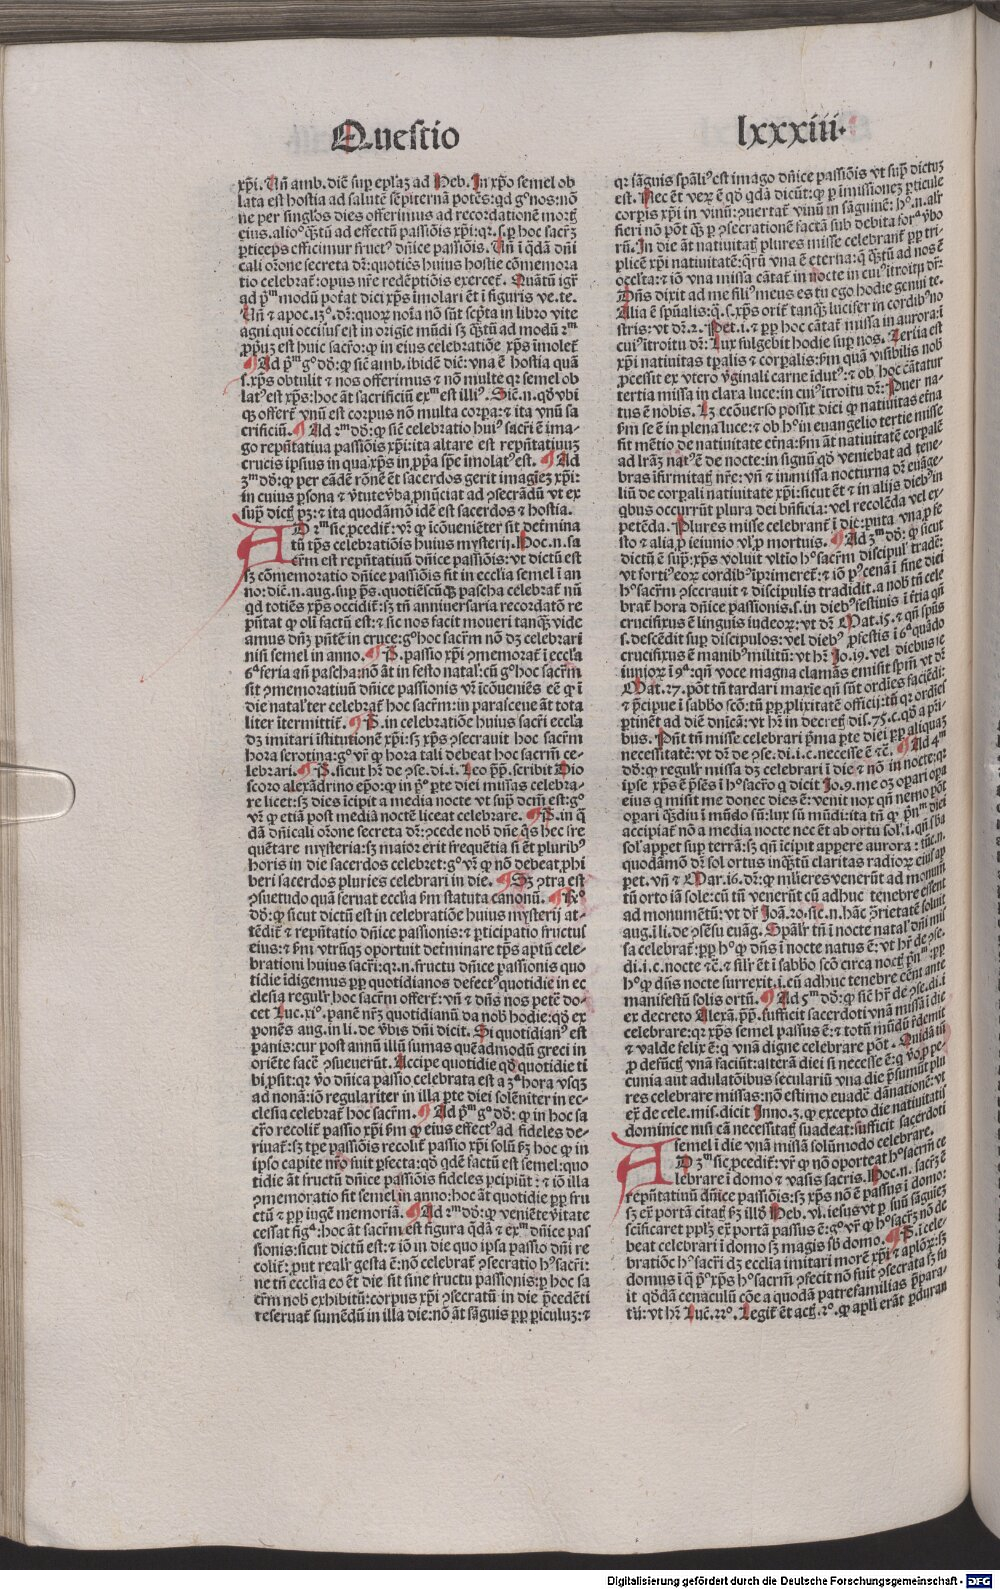 Questio lxxxiii.
xp̄i. Un̄ amb. diē sup ep̄laꝫ ad Heb. In xp̄o semel ob
lata est hostia ad salutē sēpiternā potēs: qd gͦ nos: nō
ne per singlos dies offerimus ad recordationē mortꝭ
eius. alioͦ qꝫtū ad effectū passiōis xp̄i: qꝛ .s. ꝑ hoc sacrꝫ
ꝑticeps efficimur fructꝰ dn̄ice passiōis. Un̄ ī qdā dn̄i
cali orōne secreta dr̄: quotiēs huius hostie cōmemora
tio celebrat᷑: opus nr̄e redēptiōis exercet᷑. Quātū igr̄
ad pͫ modū potat dici xp̄s īmolari ēt ī figuris ve. te.
Un̄ ⁊ apoc. 13ͦ. dr̄: quoꝝ noīa nō sūt scp̄ta in libro vite
agni qui occisus est in origīe mūdi sꝫ qꝫtū ad modū 2ͫ
ꝓpꝫ est huic sacro: ꝙ in eius celebratiōe xp̄s īmolet᷑
¶ Ad pͫ gͦ dō: ꝙ sic̄ amb. ibidē dic̄: vna ē hostia quā
.s. xp̄s obtulit ⁊ nos offerimus ⁊ nō multe qꝛ semel ob
latꝰ est xp̄s: hoc āt sacrificiū exͫ est illiꝰ. Sic̄ .n. qd̄ vbi
qꝫ offert᷑ vnū est corpus nō multa corpa: ⁊ ita vnū sa
crificiū. ¶ Ad 2ͫ dō: ꝙ sic̄ celebratio huiꝰ sacri ē ima-
go rep̄ntatiua passiōis xp̄i: ita altare est rep̄ntatiuuꝫ
crucis ipsius in qua xp̄s in ꝓp̄a sp̄e imolatꝰ est. ¶ Ad
3ͫ dō: ꝙ per eādē rōnē ēt sacerdos gerit imagieꝫ xp̄i:
in cuius ꝑsona ⁊ v̄tute v̄ba ꝓnūciat ad ꝯsecrādū vt ex
supͣ dictꝭ pꝫ: ⁊ ita quodāmō idē est sacerdos ⁊ hostia.
AD 2ͫ sic ꝓcedit᷑: vr̄ ꝙ icōueniēter sit determina
tū tp̄s celebratiōis huius mysterij. Hoc .n. sa
crm̄ est rep̄ntatiuū dn̄ice passiōis: vt dictū est
sꝫ cōmemoratio dn̄ice passiōis fit in eccl̄ia semel ī an
no: dic̄ .n. aug. sup ps̄. quotiēscūqꝫ pascha celebrat᷑ nū
qd totiēs xp̄s occidit᷑: sꝫ tn̄ anniuersaria recordatō re
p̄ntat qͦ oli factū est: ⁊ sic nos facit moueri tanqꝫ vide
amus dn̄ꝫ pn̄tē in cruce: gͦ hoc sacrm̄ nō dꝫ celebrari
nisi semel in anno. ¶ P̄. passio xp̄i ꝯmemorat᷑ ī eccl̄ia
6ͣ feria an̄ pascha: nō āt in festo natal: cū gͦ hoc sacrm̄
sit ꝯmemoratiuū dn̄ice passionis vr̄ icōueniēs eē ꝙ ī
die natal᷑ ter celebrat᷑ hoc sacrm̄: in parasceue āt tota
liter itermittit᷑. ¶ P̄. in celebratiōe huius sacri eccl̄ia
dꝫ imitari istitutionē xp̄i: sꝫ xp̄s ꝯsecrauit hoc sacrm̄
hora serotina: gͦ vr̄ ꝙ hora tali debeat hoc sacrm̄ ce-
lebrari. ¶ P̄. sicut hr̄ de ꝯse. di. i. Leo pp̄. scribit Dio
scoro alexādrino ep̄o: ꝙ in pͣ pte diei missas celebra-
re licet: sꝫ dies icipit a media nocte vt supͣ dcm̄ est: gͦ
vr̄ ꝙ etiā post mediā noctē liceat celebrare. ¶ P̄. in q̄
dā dn̄icali orōne secreta dr̄: ꝯcede nob̄ dn̄e q̄s hec fre
quētare mysteria: sꝫ maior erit frequētia si ēt pluribꝰ
horis in die sacerdos celebret: gͦ vr̄ ꝙ nō debeat ꝓhi
beri sacerdos pluries celebrari in die. ¶ Sꝫ ꝯtra est
ꝯsuetudo quā seruat eccl̄ia ẜm statuta canonū. ¶ R̄ͦ
dō: ꝙ sicut dictū est in celebratiōe huius mysterij at-
tēdit᷑ ⁊ rep̄ntatio dn̄ice passionis: ⁊ ꝑticipatio fructus
eius: ⁊ ẜm vtrūqꝫ oportuit determinare tp̄s aptū cele-
brationi huius sacri: qꝛ .n. fructu dn̄ice passionis quo
tidie īdigemus ꝑp quotidianos defectꝰ quotidie in ec
clesia regulr̄ hoc sacrm̄ offert᷑: vn̄ ⁊ dn̄s nos petē do-
cet Luc. xiͦ. panē nr̄ꝫ quotidianū da nob̄ hodie: qd̄ ex
ponēs aug. in li. de v̄bis dn̄i dicit. Si quotidianꝰ est
panis: cur post annū illū sumas quēadmodū greci in
oriēte facē ꝯsueuerūt. Accipe quotidie qd̄ quotidie ti
bi ꝓsit: qꝛ v̄o dn̄ica passio celebrata est a 3ͣ hora vsqꝫ
ad nonā: iō regulariter in illa ꝑte diei solēniter in ec-
clesia celebrat᷑ hoc sacrm̄. ¶ Ad pͫ gͦ dō: ꝙ in hoc sa
cro recolit᷑ passio xp̄i ẜm ꝙ eius effectꝰ ad fideles de-
riuat᷑: sꝫ tp̄e passiōis recolit᷑ passio xp̄i solū ẜꝫ hoc ꝙ in
ipso capite nr̄o fuit ꝑfecta: qd̄ qdē factū est semel: quo
tidie āt fructū dn̄ice passiōis fideles ꝑcipiūt: ⁊ iō illa
ꝯmemoratio fit semel in anno: hoc āt quotidie ꝑp fru
ctū ⁊ ꝑp iugē memoriā. ¶ Ad 2ͫ dō: ꝙ veniēte v̄itate
cessat figͣ: hoc āt sacrm̄ est figura q̄dā ⁊ exͫ dn̄ice pas
sionis: sicut dictū est: ⁊ iō in die quo ipsa passio dn̄i re
colit᷑: put realr̄ gesta ē: nō celebrat᷑ ꝯsecratio hꝰ sacri:
ne tn̄ eccl̄ia eo ēt die sit sine fructu passionis: ꝑ hoc sa
crm̄ nob̄ exhibitū: corpus xp̄i ꝯsecratū in die p̄cedēti
reseruat᷑ sumēdū in illa die: nō āt sāguis ꝑp ꝑiculuꝫ: ⁊
qꝛ sāguis spāliꝰ est imago dn̄ice passiōis vt supͣ dictuꝫ
est. Nec ēt veꝝ ē qd̄ qdā dicūt: ꝙ ꝑ imissionez ꝑticule
corpis xp̄i in vinū: ꝯuertat᷑ vinū in sāguinē: hͦ .n. alr̄
fieri nō pōt qꝫ ꝑ ꝯsecrationē factā sub debita forͣ v̄bo
rū. In die āt natiuitatꝭ plures misse celebrant᷑ ꝑp tri-
plicē xp̄i natiuitatē: qꝝ vna ē eterna: q̄ qꝫtū ad nos ē
occl̄ta: ⁊ iō vna missa cātat᷑ in nocte in cuiꝰ itroitu dr̄:
Dn̄s dixit ad me filiꝰ meus es tu ego hodie genui te.
Alia ē spūalis: q̄ .s. xp̄s orit᷑ tanqꝫ lucifer in cordibꝰ no
stris: vt dr̄ .2. Pet. i. ⁊ ꝑp hoc cātat᷑ missa in aurora: ī
cuiꝰ itroitu dr̄: Lux fulgebit hodie sup nos. Tertia est
xp̄i natiuitas tp̄alis ⁊ corpalis: ẜm quā visibilis nob̄
ꝓcessit ex vtero v̄ginali carne idutꝰ: ⁊ ob hoc cātatur
tertia missa in clara luce: in cuiꝰ itroitu dr̄: Puer na-
tus ē nobis. Lꝫ ecōuerso possit dici ꝙ natiuitas etn̄a
ẜm se ē in plena luce: ⁊ ob hͦ in euangelio tertie misse
fit mētio de natiuitate etn̄a: ẜm āt natiuitatē corpalē
ad lr̄aꝫ natꝰ ē de nocte: in signū qd̄ veniebat ad tene-
bras ifirmitatꝭ nr̄e: vn̄ ⁊ in missa nocturna dr̄ euāge-
liū de corpali natiuitate xp̄i: sicut ēt ⁊ in alijs diebꝰ in
qbus occurrūt plura dei bn̄ficia: vel recolēda vel ex-
petēda. Plures misse celebrant᷑ ī die: puta vna p̱ fe
sto ⁊ alia ꝓ ieiunio vl̓ ꝓ mortuis. ¶ Ad 3ͫ dō: ꝙ sicut
dictū ē supͣ: xp̄s voluit vltīo hͦ sacrm̄ discipul᷑ tradē:
vt fortiꝰ eoꝝ cordibꝰ īprimeret᷑: ⁊ iō pꝰ cenā ī fine diei
hͦ sacrm̄ ꝯsecrauit ⁊ discipulis tradidit. a nob̄ tn̄ cele
brat᷑ hora dn̄ice passionis .s. in diebꝰ festiuis ī tertia qn̄
crucifixus ē linguis iudeoꝝ: vt dr̄ Mat. 15. ⁊ qn̄ spūs
s. descēdit sup discipulos: vel diebꝰ ꝓfestis ī 6ͣ quādo
crucifixus ē manibꝰ militū: vt hr̄ Jo. 19. vel diebus ie
iunioꝝ ī 9ͣ: qn̄ voce magna clamās emisit spm̄ vt dr̄
Mat. 27. pōt tn̄ tardari maxīe qn̄ sūt ordies faciēdi:
⁊ p̄cipue ī sabbo scō: tū ꝑp plixitatē officij: tū qꝛ ordies
ꝑtinēt ad diē dn̄icā: vt hr̄ in decretꝭ dis. 75. c. qd̄ a pr̄i-
bus. Pn̄t tn̄ misse celebrari pͫa pte diei ꝑp aliquaꝫ
necessitatē: vt dr̄ de ꝯse. di. i. c. necesse ē ⁊c̄. ¶ Ad 4ͫ
dō: ꝙ regulr̄ missa dꝫ celebrari ī die ⁊ nō in nocte: qꝛ
ipse xp̄s ē p̄sēs ī hͦ sacro q̄ dicit Jo. 9. me oꝫ opari opa
eius q misit me donec dies ē: venit nox qn̄ nemo pōt
opari qꝫdiu ī mūdo sū: lux sū mūdi: ita tn̄ ꝙ pn̄ͫ diei
accipiat᷑ nō a media nocte nec ēt ab ortu sol᷑ .i. qn̄ s̄ba
sol᷑ appet sup terrā: sꝫ qn̄ icipit appere aurora: tūc .n.
quodāmō dr̄ sol ortus inqꝫtū claritas radioꝝ eius ap
pet. vn̄ ⁊ Mar. 16. dr̄: ꝙ mulieres venerūt ad monum̄
tū orto iā sole: cū tn̄ venerūt cū adhuc tenebre essent
ad monumētū: vt dr̄ Joā. 20. sic .n. hāc ꝯrietatē soluit
aug. ī li. de ꝯsēsu euāg. Spālr̄ tn̄ ī nocte natal᷑ dn̄i mis
sa celebrat᷑: ꝑp hͦ ꝙ dn̄s ī nocte natus ē: vt hr̄ de ꝯse.
di. i. c. nocte ⁊c̄. ⁊ sil̓r ēt ī sabbo scō circa noctꝭ pn̄ͫ: ꝑp
hͦ ꝙ dn̄s nocte surrexit .i. cū adhuc tenebre eēnt ante
manifestū solis ortū. ¶ Ad 5ͫ dō: ꝙ sic̄ hr̄ de ꝯse. di. i
ex decreto Alexā. pp̄. sufficit sacerdoti vnā missā ī die
celebrare: qꝛ xp̄s semel passus ē: ⁊ totū mūdū redemit
⁊ valde felix ē: q vnā digne celebrare pōt. Quidā tn̄
ꝓ defunctꝭ vnā faciūt: alterā diei si necesse ē: q v̄o ꝓ pe-
cunia aut adulatōibus seculariū vna die p̄sumūt plu
res celebrare missas: nō estimo euadē dānationē: vt
ex̄ de cele. mis. dicit Inno. 3. ꝙ excepto die natiuitatis
dominice nisi cā necessitatꝭ suadeat: sufficit sacerdoti
semel ī die vnā missā solūmodo celebrare.
AD 3ͫ sic ꝓcedit᷑: vr̄ ꝙ nō oporteat hͦ sacrm̄ ce
lebrare ī domo ⁊ vasis sacris. Hoc .n. sacrꝫ ē
rep̄ntatinū dn̄ice passiōis: sꝫ xp̄s nō ē passus ī domo:
sꝫ ex̄ portā citatꝭ ẜꝫ illd̄ Heb. vl. iesus vt ꝑ suū sāguiez
scificaret pplꝫ ex̄ portā passus ē: gͦ vr̄ ꝙ hͦ sacrꝫ nō de
beat celebrari ī domo sꝫ magis sb̄ domo. ¶ P̄. ī cele-
bratiōe hꝰ sacri dꝫ eccl̄ia imitari morē xp̄i ⁊ aploꝝ: sꝫ
domus ī q̄ pͦ xp̄s hͦ sacrm̄ ꝯfecit nō fuit ꝯsecrata sꝫ fu
it qd̄dā cenaculū cōe a quodā patrefamilias p̄para-
tū: vt hr̄ Luc. 22ͦ. Legit᷑ ēt actꝭ. 2ͦ. ꝙ apl̄i erāt ꝑduran
Digitalisierung gefördert durch die Deutsche Forschungsgemeinschaft - DFG